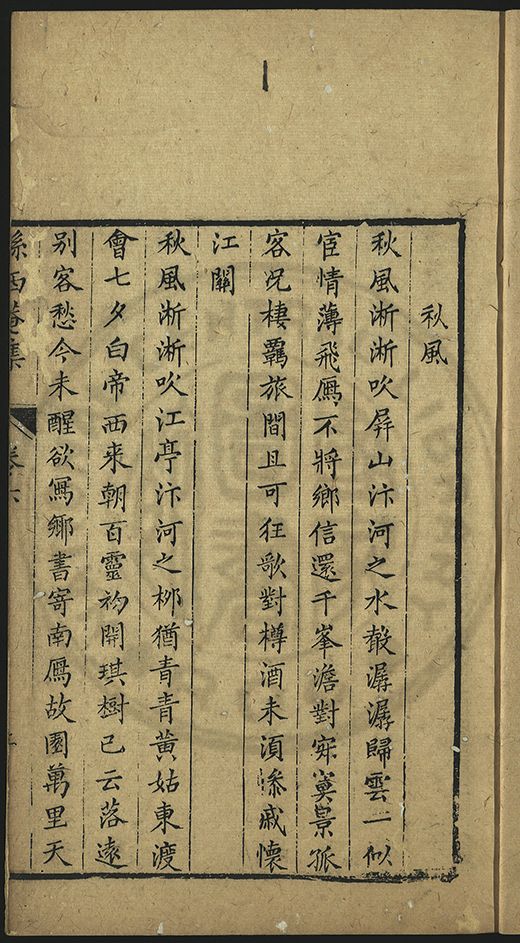 秋風
秋風淅淅吹屏山汴河之水聲潺潺歸雲一似
宦情薄飛鴈不將鄉信還千峯澹對寂寞景孤
客况棲覊旅間且可狂歌對樽酒未湏添戚懷
江關
秋風淅淅吹江亭汴河之栁猶青青黃姑東渡
會七夕白帝西来朝百靈初開琪樹已云落遠
别客愁今未醒欲寫鄉書寄南鴈故園萬里天
孫西菴集 卷六